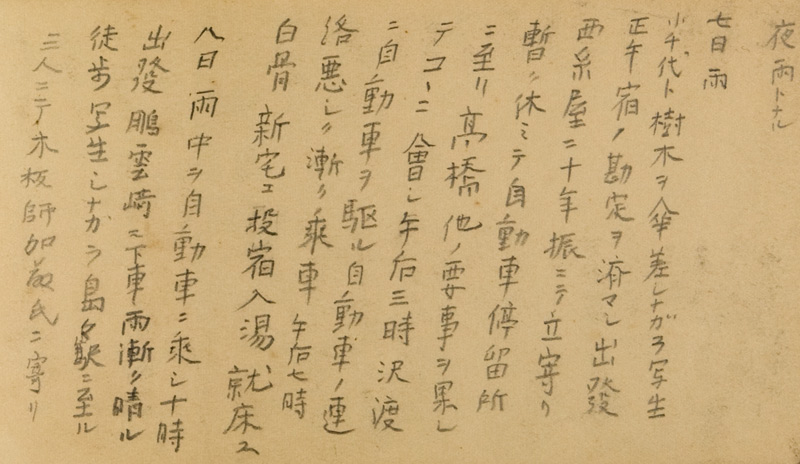 夜雨トナル
七日雨
小千代ト樹木ヲ傘差シナガラ写生
正午宿ノ勘定ヲ済マシ出發
西糸屋ニ十年振ニテ立寄リ
暫ク休ミテ自動車停留所
ニ至リ高橋他ノ要事ヲ果シ
テコーニ會シ午后三時沢渡
ニ自動車ヲ駆ル自動車ノ連
洛悪シク漸ク乘車午后七時
白骨新宅エ投宿入湯就床ス
八日雨中ヲ自動車ニ乘シ十時
出發鵬雲崎ニ下車雨漸ク晴ル
徒歩写生シナガラ島々駅ニ至ル
三人ニテ木板師加藤氏ニ寄リ